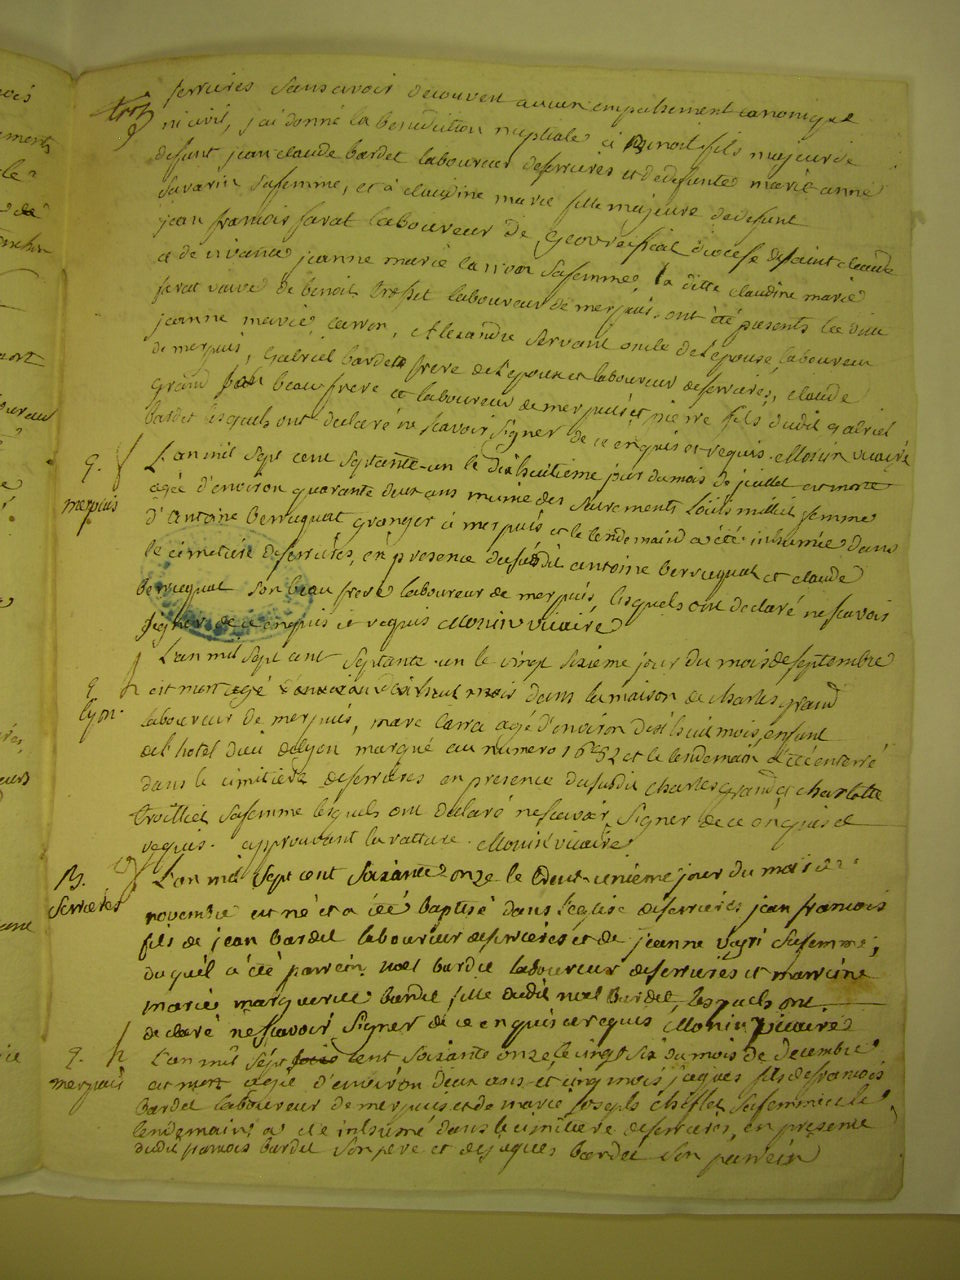 ferrieres sans avoir decouvert aucun empechement canonique
ni civil, j'ai donné la benediction nuptiale à Benoit fils majeur de
defunt jean claude bardet laboureur deferrieres et dedefunte marie anne
savarin safemme, et à claudine marie fille majeure dedefunt
jean francois favat laboureur de diocese desaint claude
et de vivante jeanne marie carron safemme, la ditte claudine marie
favat veuve de benoit laboureur de merpuis. ont été presents la ditte
jeanne marie carron, Alexandre servant oncle del'epouse, laboureur
de merpuis, Gabriel bardet frere del'epoux et laboureur deferrieres, claude
grand beaufrere et laboureur de merpuis et pierre fils dudit gabriel
bardet lesquels ont declaré ne scavoir signer de ce enquis et requis. Monin vicaire
q. L'an mil sept cent septante-un le dixhuitieme jour dumois de juillet est morte
merpuis agée d'environ quarante deux ans munie des sacrements femme
d'Antoine berruquat granger à merpuis et le lendemain a été inhumée dans
le cimetiere deferrieres, en presence dususdit antoine berruquat et claude
berruquat son beau frere laboureur de merpuis, lesquels ont declaré ne scavoir
signer de ce enquis et requis Monin vicaire
L'an mil sept cent septante-un le vingt sixieme jour du mois deseptembre
q. est mort agé dans lamaison de charles grand
lyon. laboureur de merpuis, marc agé d'environ dix huit mois, enfant
del'hotel dieu delyon marqué au numero et le lendemain a été enterré
dans le cimitiere deferrieres en presence dususdit charles grand et charlotte
troilliet safemme lesquels ont declaré nescavoir signer de ce enquis et
requis. approuvant la rature. Monin vicaire
B. L'an mil sept cent soixante onze le trent-unième jour du mois de
ferrieres novembre est né et a été baptisé dans l'eglise deferrieres jean francois
fils de jean bardet laboureur deferrieres et de jeanne safemme,
duquel a été parrein noel bardet laboureur deferrieres et marreine
marie marguerite bardet fille dudit noel bardet, lesquels ont
declaré nescavoir signer de ce enquis et requis Monin vicaire
q. L'an mil sept cent soixante onze le vingt six du mois de Decembre
merpuis est mort agé d'environ deux ans et cinq mois jaques fils defrancois
bardet laboureur de merpuis et de marie josephe chiflet safemme et le
lendemain a été inhumé dans le cimitiere deferrieres, en presence
dudit francois bardet son pere et de jaques bardet son parrein